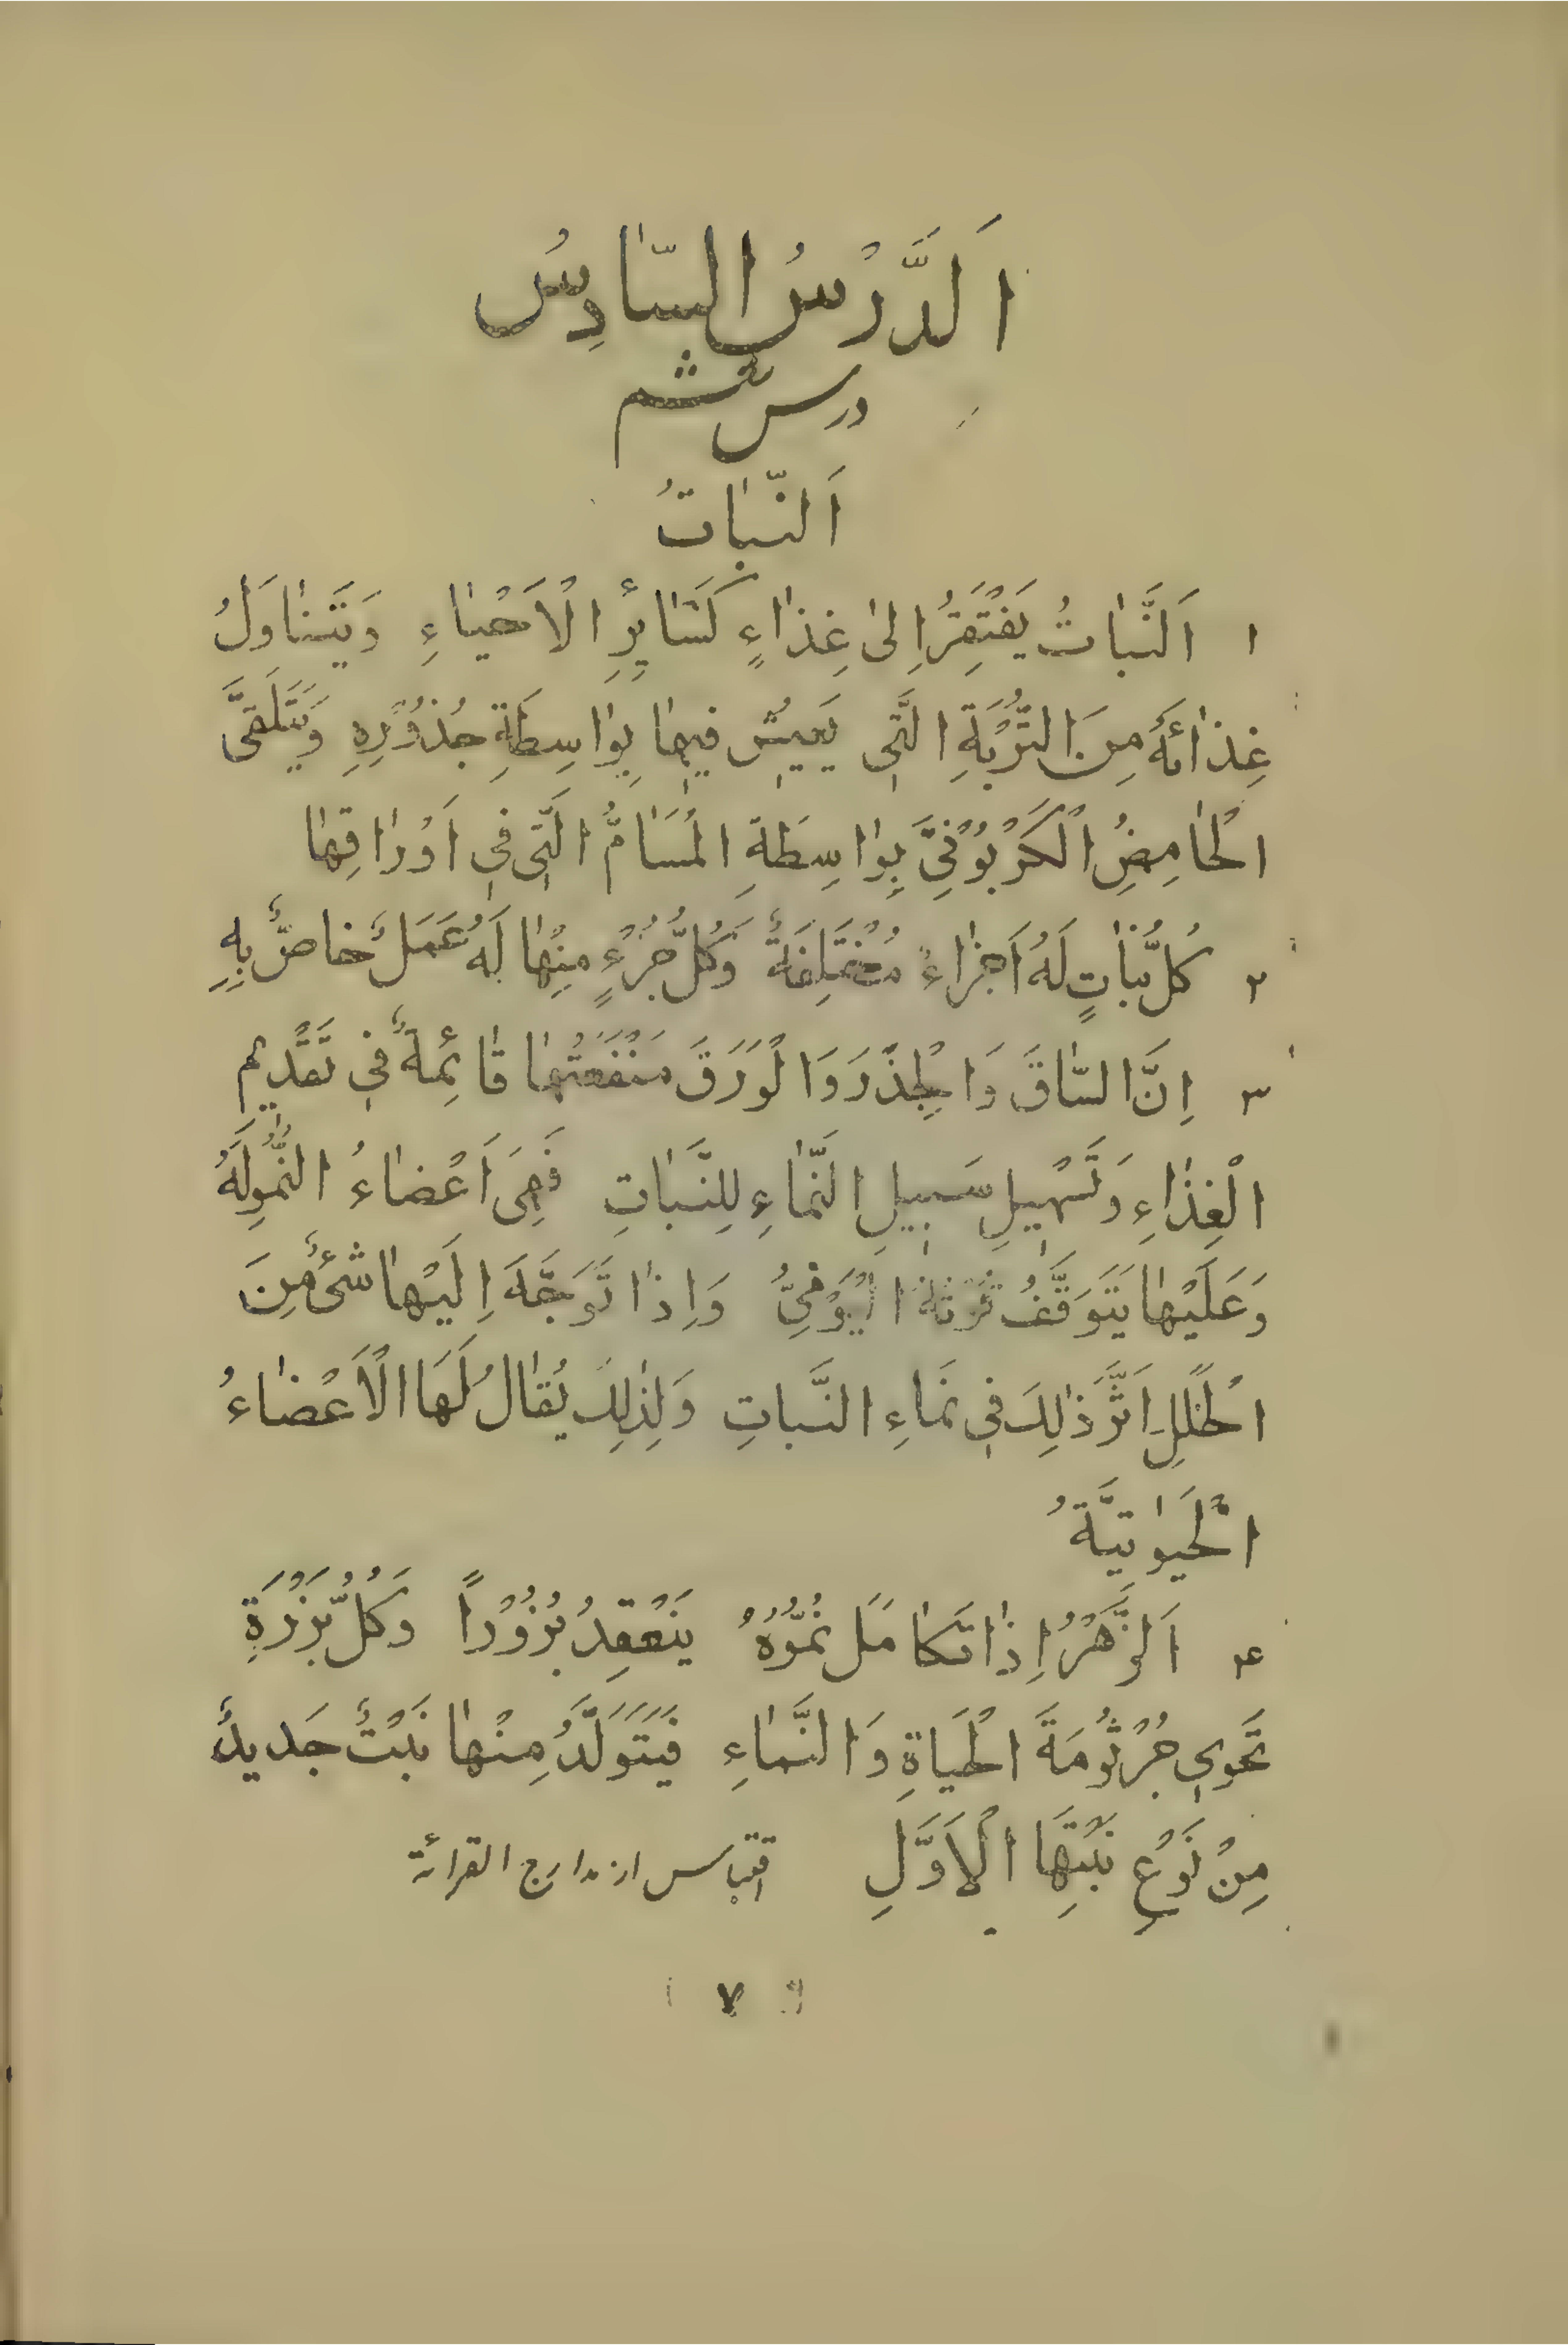 اَلدَّرْسُ السّادِسُ
درس ششم
اَلنّباتُ
۱ اَلنَّباتُ يَفْتَقِرُ اِلىٰ غِذاءٍ كَسَائِرِ الْاَحْياءِ وَيَتَناوَلُ
غِذائَهُ مِنَ التُّرْبَةِ الَّتِى يَعيشُ فيها بِوٰاسِطَةِ جُذُوْرِهِ وَيَتَلَقىَّ
الْحٰامِضُ الْكَرْبُوْنِىَّ بِوٰاسِطَةِ الْمَسَامُّ الَّتِى فِى اَوْرٰاقِها
۲ كُلُّ نَباتٍ لَهُ اَجْزاءٌ مُخْتَلِفَةٌ وَكُلُّ جُزْءٍ مِنْها لَهُ عَمَلٌ خاصٌّ بِهِ
۳ اِنَّ السّاقَ وَالْجِذْرَ وَالْوَرَقَ مَنْفَعَتُها قائِمَةٌ فِى تَقْديمِ
الْغِذٰاءِ وَتَسْهيلِ سَبيلِ النَّماءِ لِلنَّباتِ فَهِىَ اَعْضاءُ النُّمُوِلَهُ
وَعَلَيْها يَتَوَقَّفُ ثَرْتَهُ الْيَوْمِىُّ وَاِذا تَوَجَّهَ اِلَيْها شَىْءٌ مِنَ
الْخَلَلِ اَثَّرَ ذٰلِكَ فِى نَماءِ النَّباتِ وَلِذٰلِكَ يُقالُ لَهَا الْاَعْضاءُ
الْحَيوٰتيَّةُ
۴ اَلزَّهْرُ اِذا تَكامَلَ نُمُوُّهُ يَنْعَقِدُ بُزُوْراً وَكُلُّ بَزْرَةٍ
تَحْوى جُرْثُومَةَ الْحَياةِ وَالنَّماءِ فَيَتَوَلَّدُ مِنْها نَبْتٌ جَديدٌ
مِنْ نَوْعِ نَبْتِهَا الْاَوَّلِ اقتباس از مدارج القرائة
۷